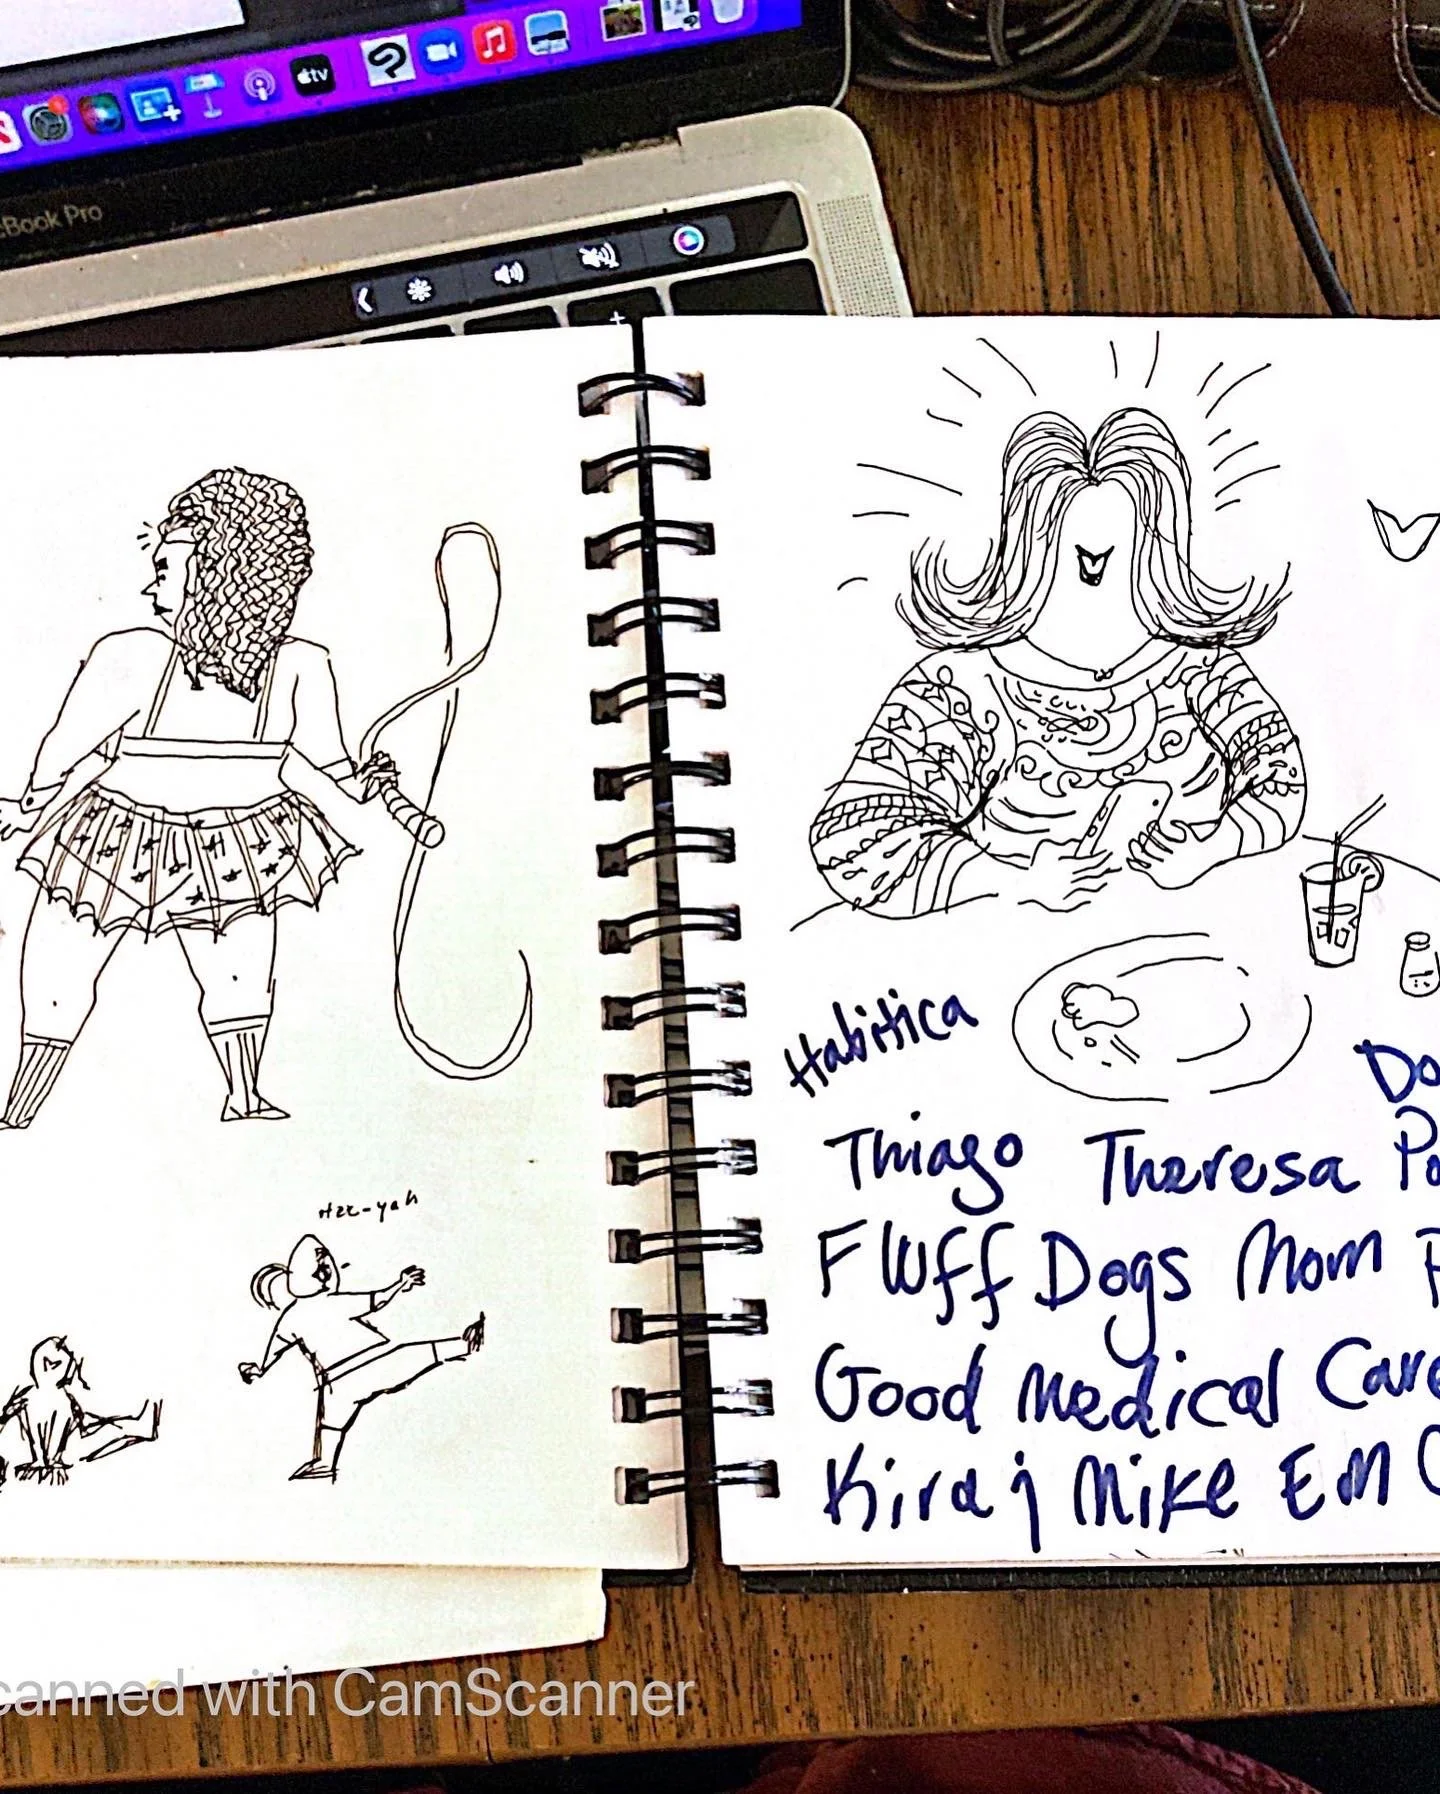 tv
Book Pro
Hee-yah
Habitica
Do
Thiago Theresa Po
Fluff Dogs Mom
Good Medical Care
Kira j Mike Em
canned with CamScanner